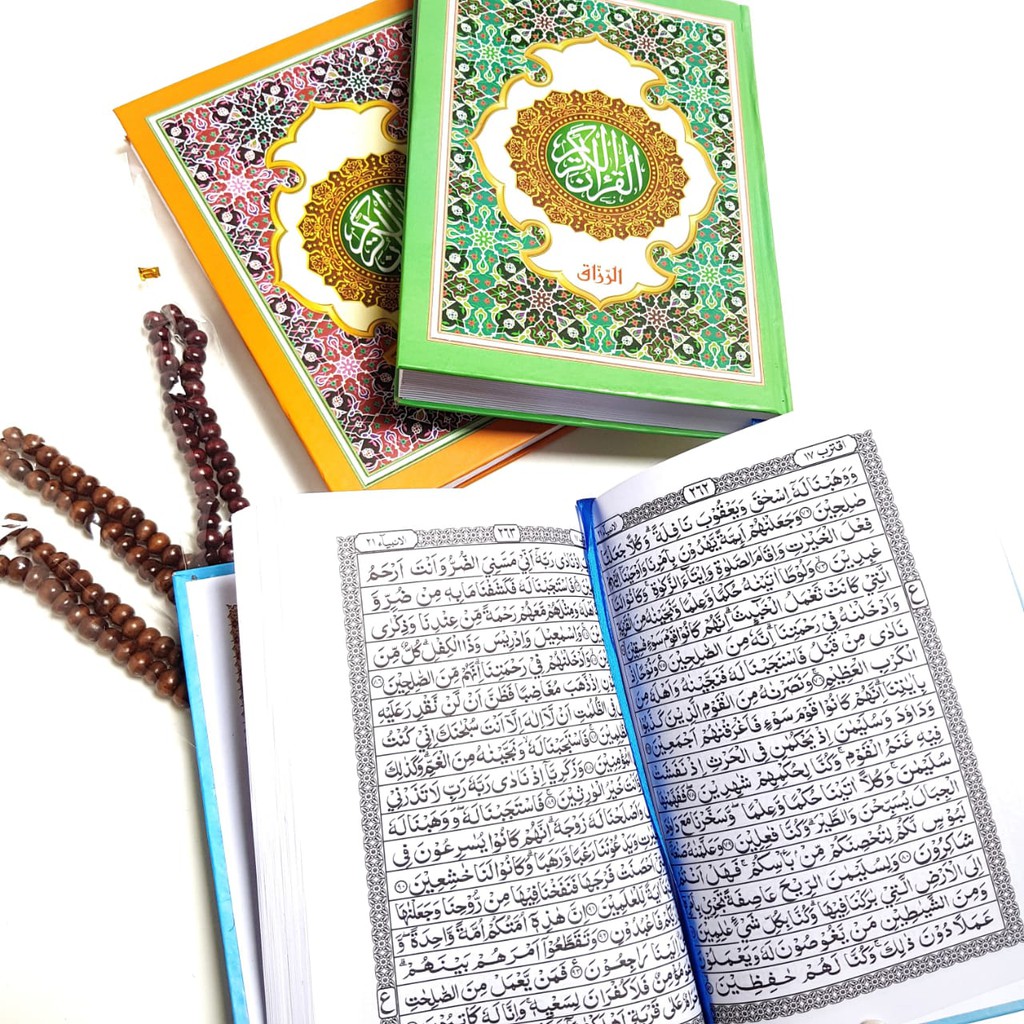 القرآن الكريم
الرزاق
اقترب ١٧
٢٦٢
وَوَهَبْنَا لَهٗٓ اِسْحٰقَ وَيَعْقُوْبَ نَافِلَةً ۗ وَكُلًّا جَعَلْنَا
صٰلِحِيْنَ ٧٢ وَجَعَلْنٰهُمْ اَىِٕمَّةً يَّهْدُوْنَ بِاَمْرِنَا وَاَوْحَيْنَآ
فِعْلَ الْخَيْرٰتِ وَاِقَامَ الصَّلٰوةِ وَاِيْتَآءَ الزَّكٰوةِ ۚ وَكَانُوْا لَنَا
عٰبِدِيْنَ ٧٣ وَلُوْطًا اٰتَيْنٰهُ حُكْمًا وَّعِلْمًا وَّنَجَّيْنٰهُ مِنَ الْقَرْيَةِ
الَّتِيْ كَانَتْ تَّعْمَلُ الْخَبٰٓىِٕثَ ۗ اِنَّهُمْ كَانُوْا قَوْمَ سَوْءٍ فٰسِقِيْنَ ٧٤
وَاَدْخَلْنٰهُ فِيْ رَحْمَتِنَا ۗ اِنَّهٗ مِنَ الصّٰلِحِيْنَ ٧٥ وَنُوْحًا اِذْ
نَادٰى مِنْ قَبْلُ فَاسْتَجَبْنَا لَهٗ فَنَجَّيْنٰهُ وَاَهْلَهٗ مِنَ
الْكَرْبِ الْعَظِيْمِ ٧٦ وَنَصَرْنٰهُ مِنَ الْقَوْمِ الَّذِيْنَ كَذَّبُوْا
بِاٰيٰتِنَا ۗ اِنَّهُمْ كَانُوْا قَوْمَ سَوْءٍ فَاَغْرَقْنٰهُمْ اَجْمَعِيْنَ ٧٧
وَدَاوٗدَ وَسُلَيْمٰنَ اِذْ يَحْكُمٰنِ فِى الْحَرْثِ اِذْ نَفَشَتْ
فِيْهِ غَنَمُ الْقَوْمِ ۚ وَكُنَّا لِحُكْمِهِمْ شٰهِدِيْنَ ٧٨ فَفَهَّمْنٰهَا
سُلَيْمٰنَ ۚ وَكُلًّا اٰتَيْنَا حُكْمًا وَّعِلْمًا ۖ وَّسَخَّرْنَا مَعَ دَاوٗدَ
الْجِبَالَ يُسَبِّحْنَ وَالطَّيْرَ ۗ وَكُنَّا فٰعِلِيْنَ ٧٩ وَعَلَّمْنٰهُ صَنْعَةَ
لَبُوْسٍ لَّكُمْ لِتُحْصِنَكُمْ مِّنْ بَأْسِكُمْ ۚ فَهَلْ اَنْتُمْ
شَاكِرُوْنَ ٨٠ وَلِسُلَيْمٰنَ الرِّيْحَ عَاصِفَةً تَجْرِيْ
اِلَى الْاَرْضِ الَّتِيْ بٰرَكْنَا فِيْهَا ۗ وَكُنَّا بِكُلِّ شَيْءٍ عٰلِمِيْنَ
وَمِنَ الشَّيٰطِيْنِ مَنْ يَّغُوْصُوْنَ لَهٗ وَيَعْمَلُوْنَ
عَمَلًا دُوْنَ ذٰلِكَ ۚ وَكُنَّا لَهُمْ حٰفِظِيْنَ
ع
٢٦٣
الانبيآء ٢١
نَادٰى رَبَّهٗٓ اَنِّيْ مَسَّنِيَ الضُّرُّ وَاَنْتَ اَرْحَمُ
فَاسْتَجَبْنَا لَهٗ فَكَشَفْنَا مَا بِهٖ مِنْ ضُرٍّ وَّ
وَمِثْلَهُمْ مَّعَهُمْ رَحْمَةً مِّنْ عِنْدِنَا وَذِكْرٰى
وَاِسْمٰعِيْلَ وَاِدْرِيْسَ وَذَا الْكِفْلِ ۗ كُلٌّ مِّنَ
وَاَدْخَلْنٰهُمْ فِيْ رَحْمَتِنَا ۗ اِنَّهُمْ مِّنَ الصّٰلِحِيْنَ ٨٦
اِذْ ذَّهَبَ مُغَاضِبًا فَظَنَّ اَنْ لَّنْ نَّقْدِرَ عَلَيْهِ
فِى الظُّلُمٰتِ اَنْ لَّآ اِلٰهَ اِلَّآ اَنْتَ سُبْحٰنَكَ ۖ اِنِّيْ كُنْتُ
فَاسْتَجَبْنَا لَهٗ ۙ وَنَجَّيْنٰهُ مِنَ الْغَمِّ ۗ وَكَذٰلِكَ
وَزَكَرِيَّآ اِذْ نَادٰى رَبَّهٗ رَبِّ لَا تَذَرْنِيْ
خَيْرُ الْوٰرِثِيْنَ ٨٩ فَاسْتَجَبْنَا لَهٗ ۖ وَوَهَبْنَا لَهٗ
وَاَصْلَحْنَا لَهٗ زَوْجَهٗ ۗ اِنَّهُمْ كَانُوْا يُسٰرِعُوْنَ فِى
وَيَدْعُوْنَنَا رَغَبًا وَّرَهَبًا ۗ وَكَانُوْا لَنَا خٰشِعِيْنَ ٩٠
فَرْجَهَا فَنَفَخْنَا فِيْهَا مِنْ رُّوْحِنَا وَجَعَلْنٰهَا
لِّلْعٰلَمِيْنَ ٩١ اِنَّ هٰذِهٖٓ اُمَّتُكُمْ اُمَّةً وَّاحِدَةً ۖ وَّ
فَاعْبُدُوْنِ ٩٢ وَتَقَطَّعُوْٓا اَمْرَهُمْ بَيْنَهُمْ ۗ
اِلَيْنَا رٰجِعُوْنَ ٩٣ فَمَنْ يَّعْمَلْ مِنَ الصّٰلِحٰتِ
فَلَا كُفْرَانَ لِسَعْيِهٖ ۚ وَاِنَّا لَهٗ كٰتِبُوْنَ
عَلٰى قَرْيَةٍ
ع